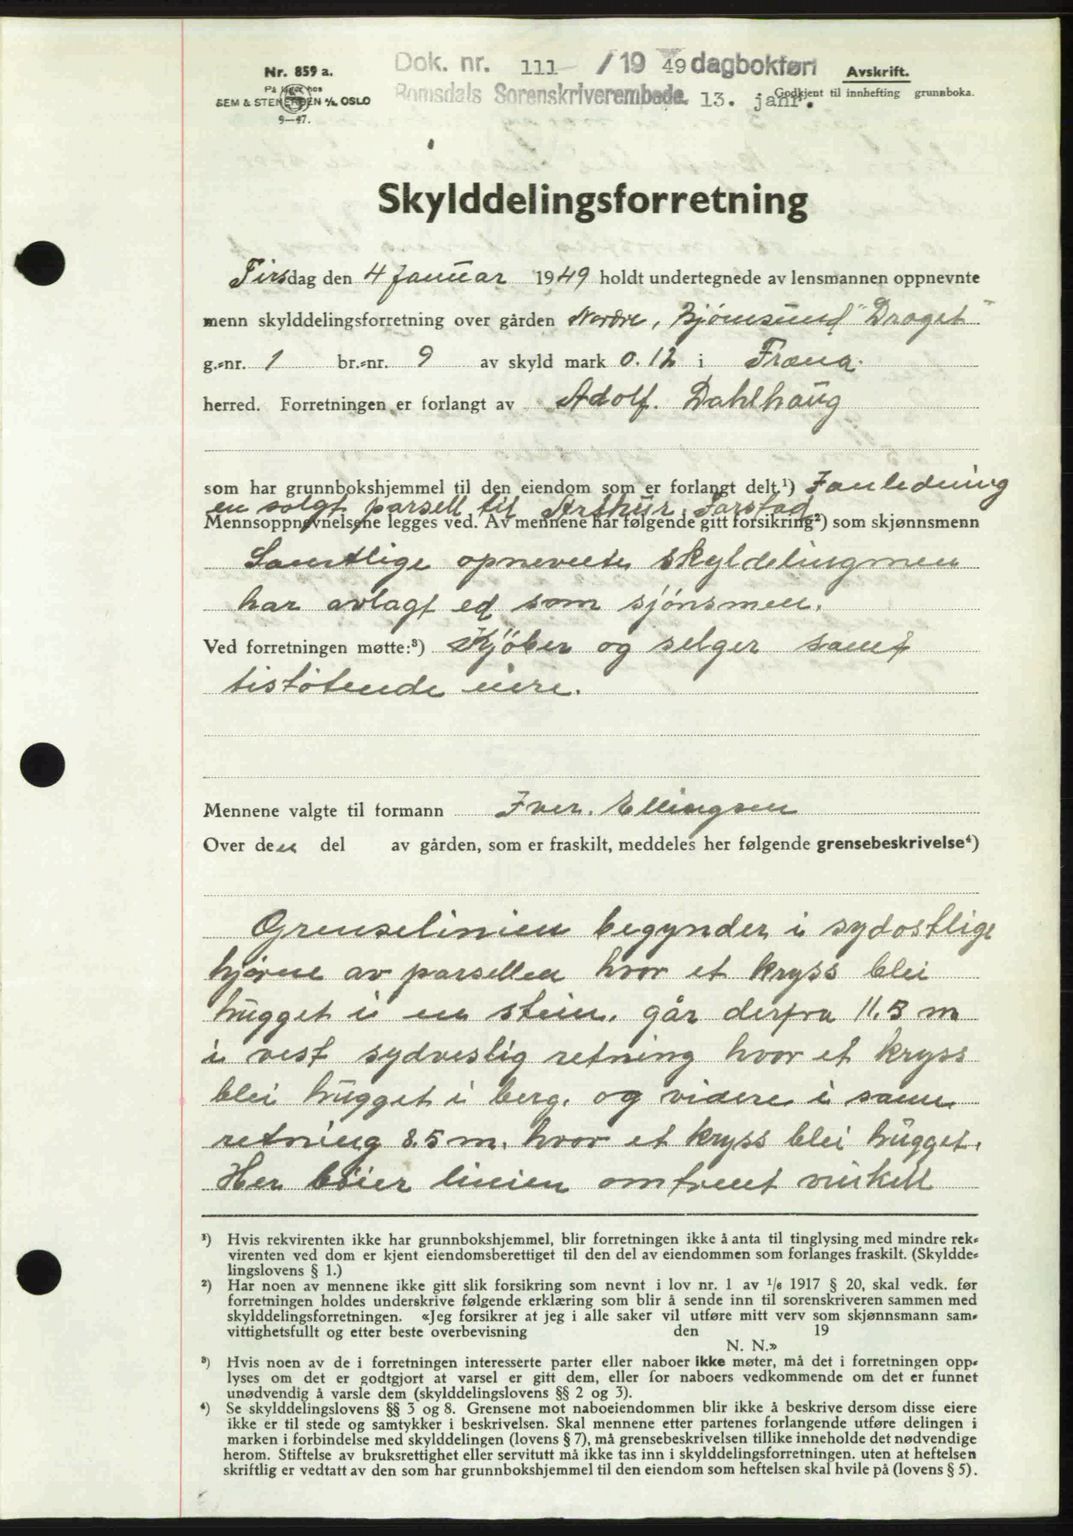 Nr. 859 a.
På lager hos
SEM & STENERSEN A/S, OSLO
9—47.
Dok. nr. 111 / 19 49 dagbokført
Romsdals Sorenskriverembede. 13. janr.
Avskrift.
Godkjent til innhefting grunnboka.
Skylddelingsforretning
Tirsdag den 4 Januar 1949 holdt undertegnede av lensmannen oppnevnte
menn skylddelingsforretning over gården Nordre, Bjørnsund "Draget"
g.-nr. 1 br.-nr. 9 av skyld mark 0.12 i Fræna.
herred. Forretningen er forlangt av Adolf. Dahlhaug
som har grunnbokshjemmel til den eiendom som er forlangt delt.¹) I anledning
en solgt parsell til Arthur Farstad
Mennsoppnevnelsene legges ved. Av mennene har følgende gitt forsikring²) som skjønnsmenn
Samtlige opnevnte skyldelingmen
har avlagt ed som sjönsmen.
Ved forretningen møtte:³) Kjöber og selger samt
tistötende eiere.
Mennene valgte til formann Iver. Ellingsen
Over den del av gården, som er fraskilt, meddeles her følgende grensebeskrivelse⁴)
Grenselinien begynder i sydostlige
hjørne av parsellen hvor et kryss blei
hugget i en stein. går derfra 11.5 m
i vest sydveslig retning hvor et kryss
blei hugget i berg. og videre i same
retning 8.5 m. hvor et kryss blei hugget.
Her böier linien omtrent vinkell
¹) Hvis rekvirenten ikke har grunnbokshjemmel, blir forretningen ikke å anta til tinglysing med mindre rek-
virenten ved dom er kjent eiendomsberettiget til den del av eiendommen som forlanges fraskilt. (Skyldde-
lingslovens § 1.)
²) Har noen av mennene ikke gitt slik forsikring som nevnt i lov nr. 1 av ¹/₆ 1917 § 20, skal vedk. før
forretningen holdes underskrive følgende erklæring som blir å sende inn til sorenskriveren sammen med
skylddelingsforretningen. «Jeg forsikrer at jeg i alle saker vil utføre mitt verv som skjønnsmann sam-
vittighetsfullt og etter beste overbevisning den 19
N. N.»
³) Hvis noen av de i forretningen interesserte parter eller naboer ikke møter, må det i forretningen opp-
lyses om det er godtgjort at varsel er gitt dem, eller for naboers vedkommende om det er funnet
unødvendig å varsle dem (skylddelingslovens §§ 2 og 3).
⁴) Se skylddelingslovens §§ 3 og 8. Grensene mot naboeiendommen blir ikke å beskrive dersom disse eiere
ikke er til stede og samtykker i beskrivelsen. Skal mennene etter partenes forlangende utføre delingen i
marken i forbindelse med skylddelingen (lovens § 7), må grensebeskrivelsen tillike inneholde det nødvendige
herom. Stiftelse av bruksrettighet eller servitutt må ikke tas inn i skylddelingsforretningen. uten at heftelsen
skriftlig er vedtatt av den som har grunnbokshjemmel til den eiendom som heftelsen skal hvile på (lovens § 5).